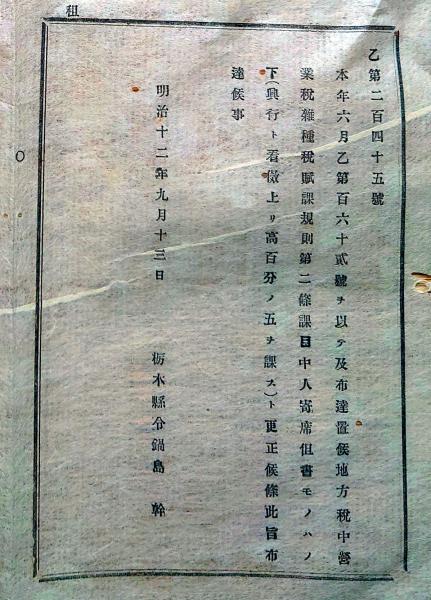 租
乙第二百四十五號
本年六月乙第百六十貳號ヲ以テ及布達置候地方税中營
業税雜種税賦課規則第二條課目中人寄席但書モノハノ
下(興行ト看做上リ高百分ノ五ヲ課ス)ト更正候條此旨布
達候事
明治十二年九月十三日
栃木縣令鍋島幹